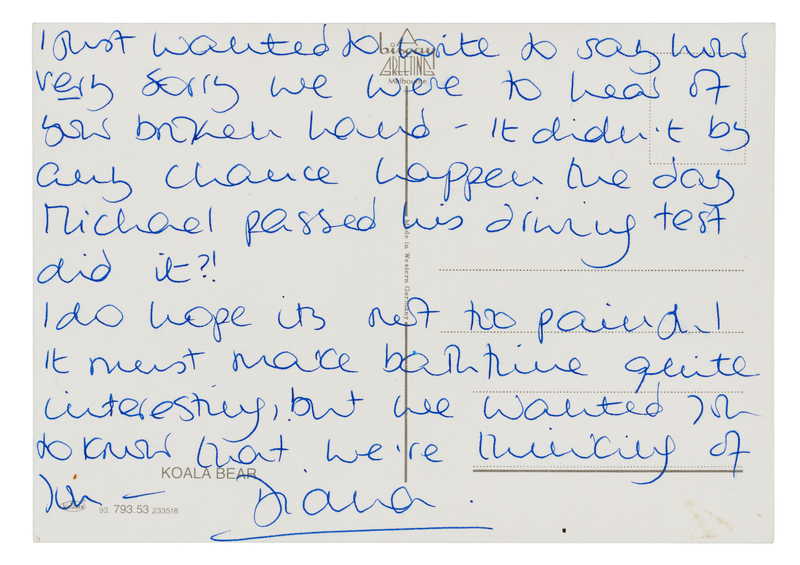 I just wanted to write to say how
very sorry we were to hear of
your broken hand - it didn't by
any chance happen the day
Michael passed his driving test
did it?!
I do hope its not too painful
It must make bathtime quite
interesting, but we wanted you
to know that we're thinking of
you - Diana.
GREETINGS
Melbourne
Made in Western Germany
KOALA BEAR
93. 793.53 233518